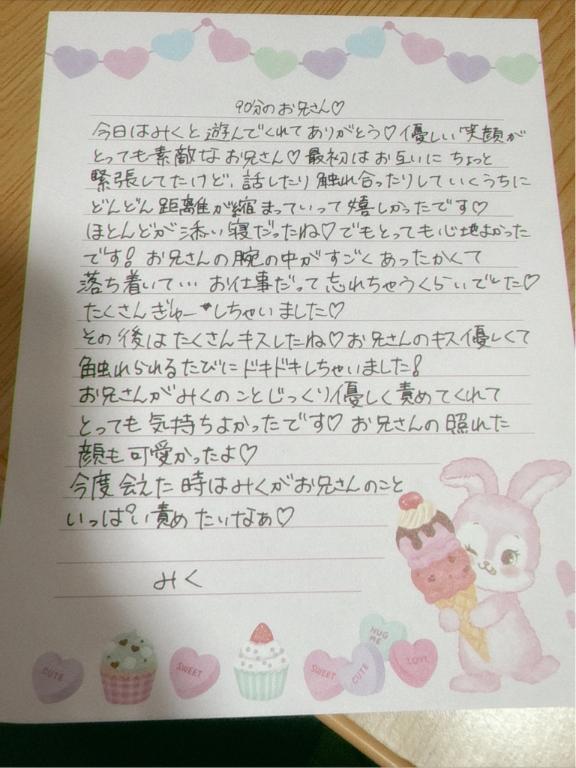 90分のお兄さん♡
今日はみくと遊んでくれてありがとう♡優しい笑顔が
とっても素敵なお兄さん♡最初はお互いにちょっと
緊張してたけど、話したり触れ合ったりしていくうちに
どんどん距離が縮まっていって嬉しかったです♡
ほとんどが添い寝だったね♡でもとっても心地よかった
です!お兄さんの腕の中がすごくあったかくて
落ち着いて…お仕事だって忘れちゃうくらいでした♡
たくさんぎゅーしちゃいました♡
その後はたくさんキスしたね♡お兄さんのキス優しくて
触れられるたびにドキドキしちゃいました!
お兄さんがみくのことじっくり優しく責めてくれて
とっても気持ちよかったです♡お兄さんの照れた
顔も可愛かったよ♡
今度会えた時はみくがお兄さんのこと
いっぱい責めたいなぁ♡
みく
CUTE
SWEET
SWEET
CUTE
HUG
ME
LOVE